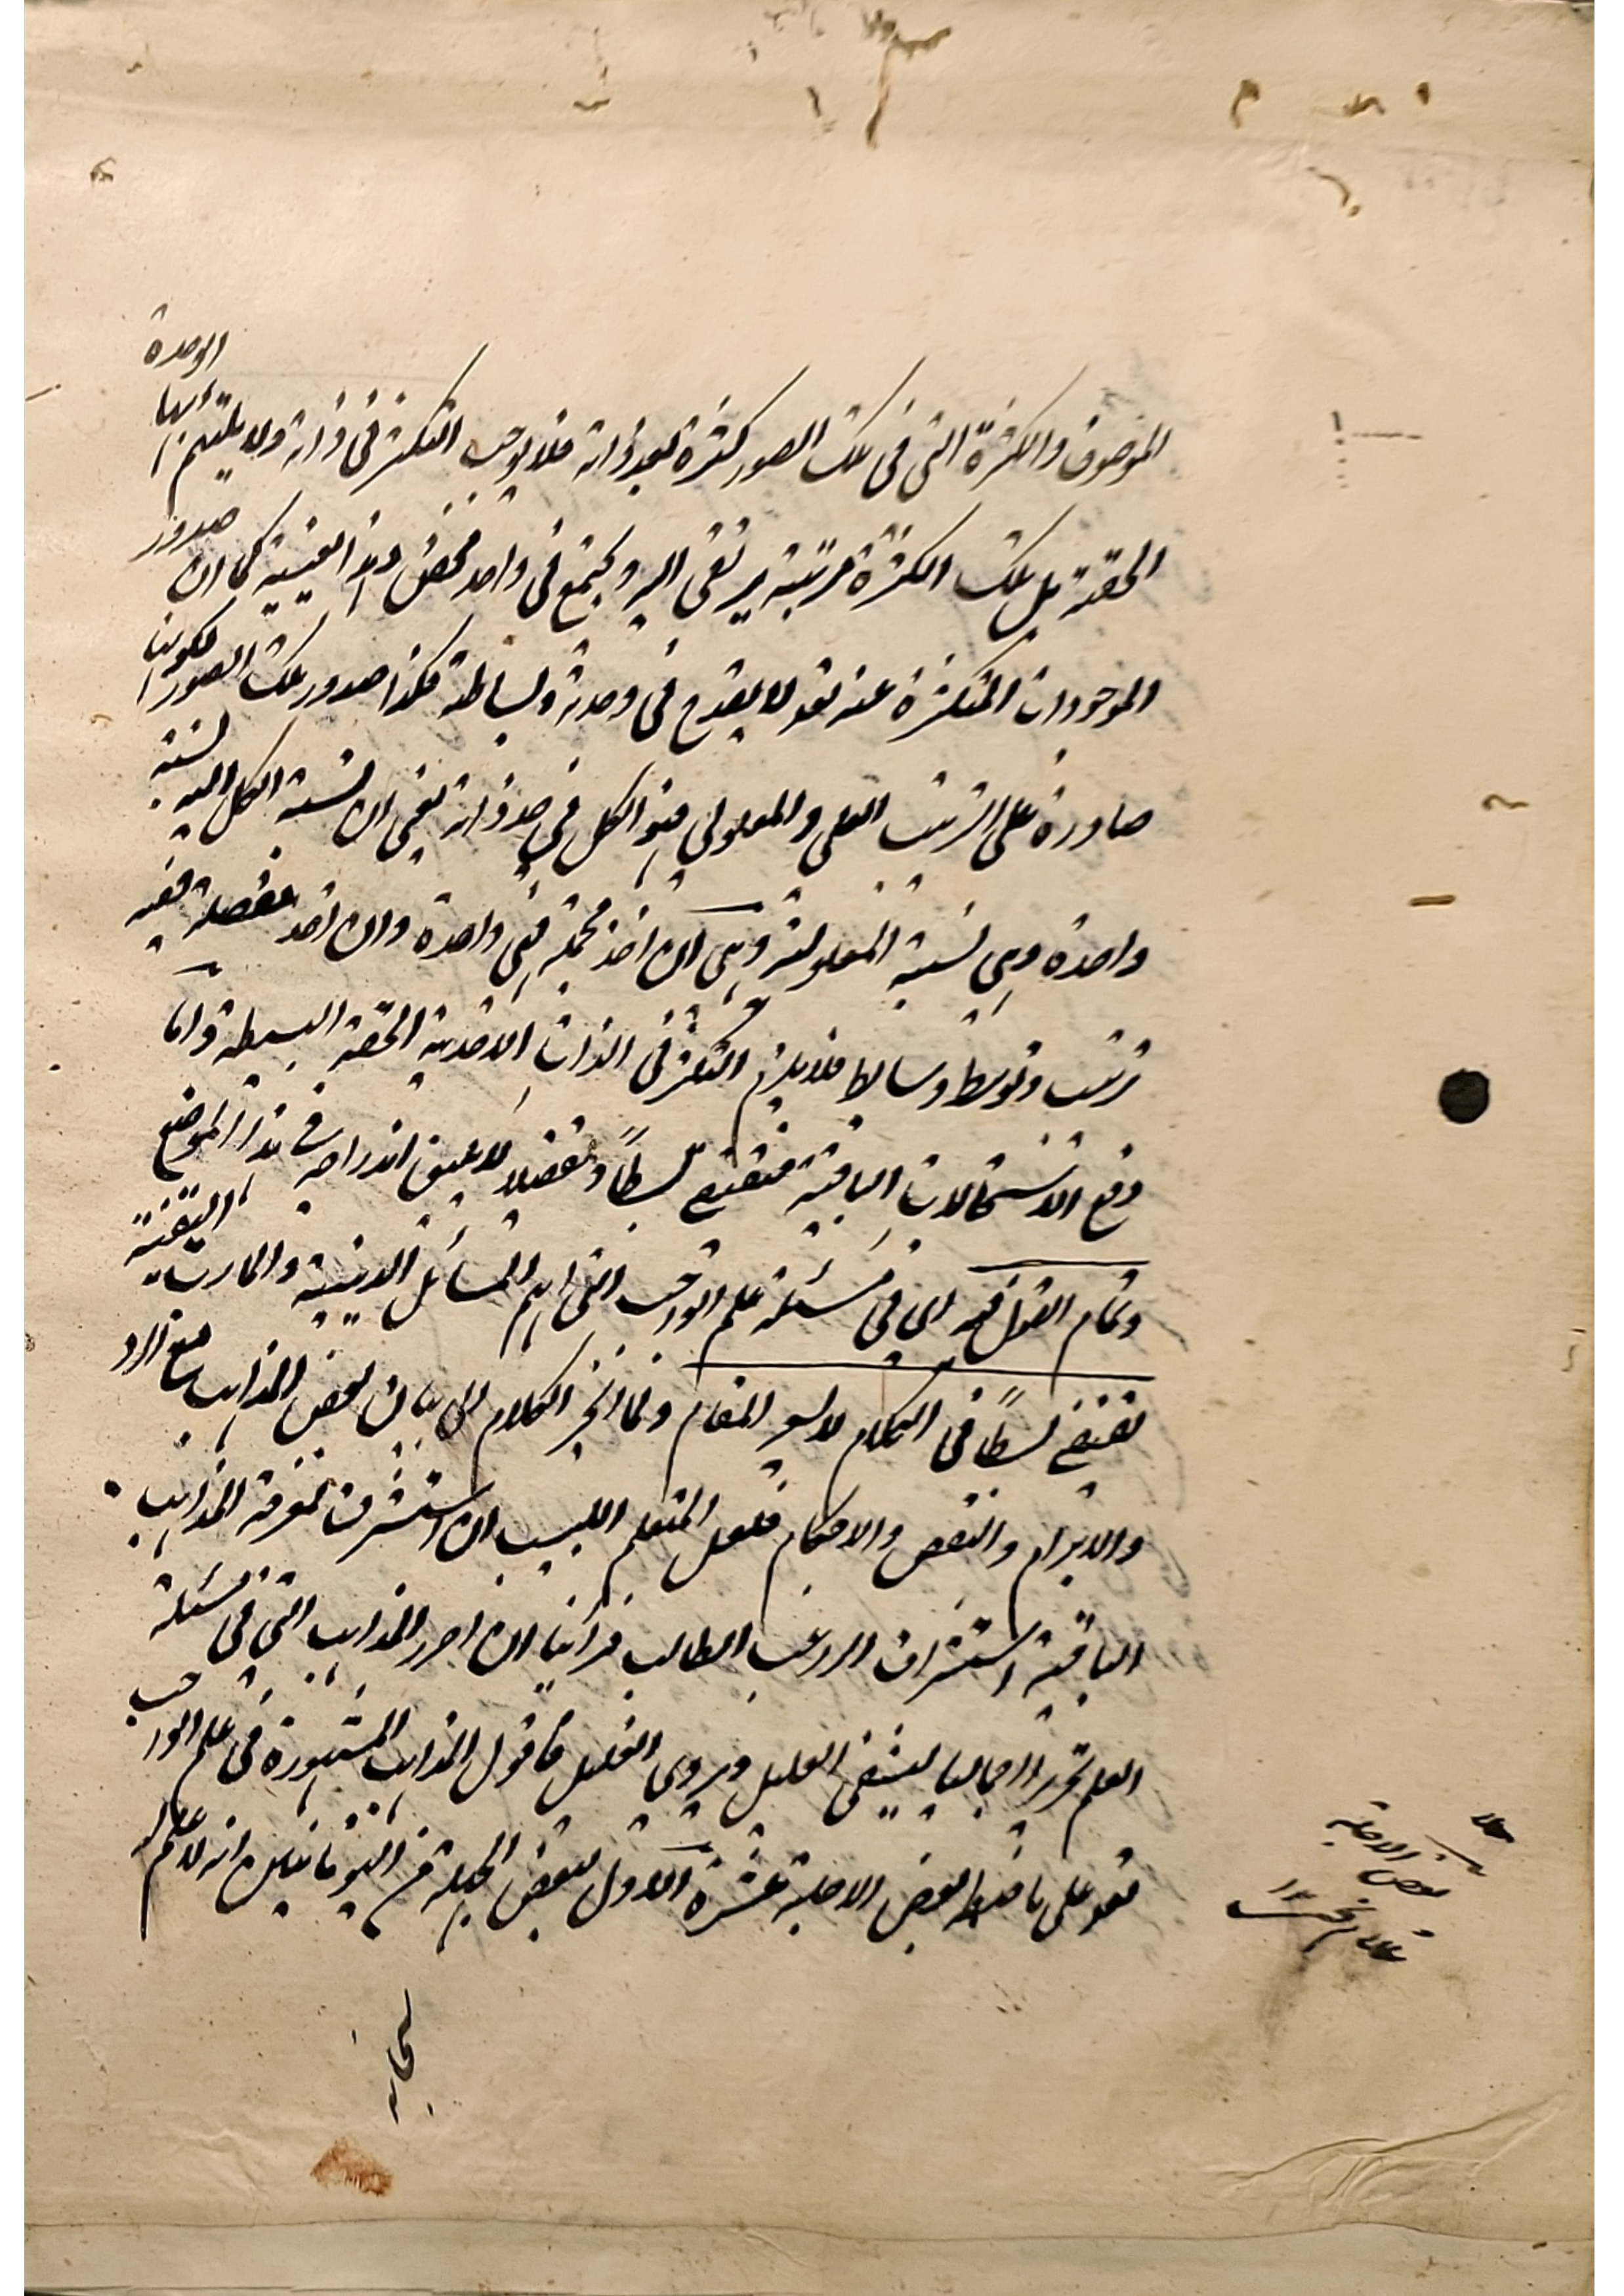 الموصوف والكثرة التى فى تلك الصور كثرة بعد ذاته فلا يوجب التكثر فى ذاته ولا ينثلم بها الوحدة
الحقة بل تلك الكثرة مرتبة يرتقى اليه ويجتمع فى واحد محض وهذا بعينه كما ان صدور
الموجودات المتكثرة عنه تعه لا يقدح فى وحدته وبساطته فكذا صدور تلك الصور لكونها
صادرة على الترتيب العلى والمعلولى فهو الكل فى حد ذاته يعنى ان نسبة الكل اليه نسبة
واحدة وهى نسبة المعلولية وهى ان اخذ مجملة فهى واحدة وان اخذ مفصلة ففيه
ترتيب وتوسط وسايط فلا يلزم التكثر فى الذات الاحدية الحقة البسيطة واما
دفع الاستحالات الباقية فيقتضى بسطاً وتفصيلا لا يليق اندراجه فى هذا الموضع
وتمام القول فيه اى فى مسئلة علم الواجب التى اهم المسائل الدينية والمارب اليقينية
يقتضى بسطاً فى الكلام لا يسعه المقام ولما انجر الكلام الى بيان بعض المذاهب مع الرد
والابرام والنقض والاحكام فلعل المتعلم اللبيب ان استشرف لمعرفة المذاهب
الباقية استشراف الراغب الطالب فرأينا ان احرر المذاهب التى فى مسئلة
العلم تحريرا اجماليا ليشفى العليل ويروى الغليل فاقول المذاهب المشهورة فى علم الواجب
تعه على ما ضبطه بعض الاجلة عشرة الاول لبعض الجهلة من اليونانيين انه لا علم له
بعض الاجلة